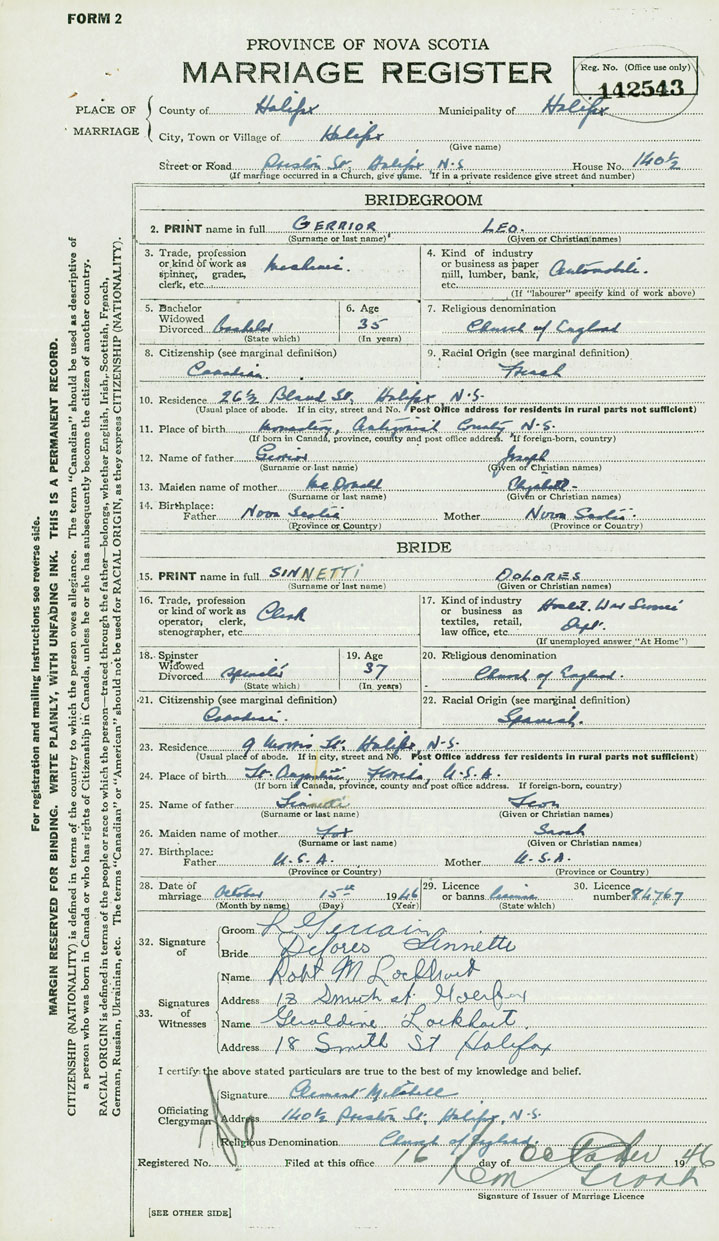 FORM 2
PROVINCE OF NOVA SCOTIA
MARRIAGE REGISTER
Reg. No. (Office use only)
142543
PLACE OF MARRIAGE
County of Halifax Municipality of Halifax
City, Town or Village of Halifax
(Give name)
Street or Road Preston St. Halifax N.S House No. 140½
(If marriage occurred in a Church, give name. If in a private residence give street and number)
BRIDEGROOM
2. PRINT name in full GERRIOR LEO.
(Surname or last name) (Given or Christian names)
3. Trade, profession or kind of work as spinner, grader, clerk, etc. Mechanic.
4. Kind of industry or business as paper mill, lumber, bank, etc. Automobile.
(If "labourer" specify kind of work above)
5. Bachelor Widowed Divorced bachelor
(State which)
6. Age 35
(In years)
7. Religious denomination
Church of England
8. Citizenship (see marginal definition)
Canadian.
9. Racial Origin (see marginal definition)
French
10. Residence 26½ Bland St. Halifax N.S.
(Usual place of abode. If in city, street and No. Post Office address for residents in rural parts not sufficient)
11. Place of birth Monastery, Antigonish County N.S.
(If born in Canada, province, county and post office address. If foreign-born, country)
12. Name of father Gerrior Joseph
(Surname or last name) (Given or Christian names)
13. Maiden name of mother McDonald
(Surname or last name) (Given or Christian names)
14. Birthplace:
Father Nova Scotia Mother Nova Scotia.
(Province or Country) (Province or Country)
BRIDE
15. PRINT name in full SINNETTI DOLORES
(Surname or last name) (Given or Christian names)
16. Trade, profession or kind of work as operator, clerk, stenographer, etc. Clerk
17. Kind of industry or business as textiles, retail, law office, etc. Dept.
(If unemployed answer "At Home")
18. Spinster Widowed Divorced spinster
(State which)
19. Age 37
(In years)
20. Religious denomination
Church of England.
21. Citizenship (see marginal definition)
Canadian.
22. Racial Origin (see marginal definition)
Spanish.
23. Residence 9 Morris St. Halifax, N.S.
(Usual place of abode. If in city, street and No. Post Office address for residents in rural parts not sufficient)
24. Place of birth St. Augustine, Florida, U.S.A.
(If born in Canada, province, county and post office address. If foreign-born, country)
25. Name of father Sinnetti Leon
(Surname or last name) (Given or Christian names)
26. Maiden name of mother Fox Sarah
(Surname or last name) (Given or Christian names)
27. Birthplace:
Father U.S.A. Mother U.S.A.
(Province or Country) (Province or Country)
28. Date of marriage October 15th 1946
(Month by name) (Day) (Year)
29. Licence or banns license
(State which)
30. Licence number 84767
32. Signature of
Groom L Gerrior
Bride Delores Sinnette
33. Signatures of Witnesses
Name Robt M Lockhart
Address 18 Smith st Halifax
Name Geraldine Lockhart.
Address 18 Smith St Halifax
I certify the above stated particulars are true to the best of my knowledge and belief.
Officiating Clergyman
Signature Clement Mitchell
Address 140½ Preston St. Halifax, N.S.
Religious Denomination Church of England.
Registered No. Filed at this office 16 day of October 1946
Signature of Issuer of Marriage Licence
[SEE OTHER SIDE]
For registration and mailing instructions see reverse side.
MARGIN RESERVED FOR BINDING. WRITE PLAINLY, WITH UNFADING INK. THIS IS A PERMANENT RECORD.
CITIZENSHIP (NATIONALITY) is defined in terms of the country to which the person owes allegiance. The term "Canadian" should be used as descriptive of
a person who was born in Canada or who has rights of Citizenship in Canada, unless he or she has subsequently become the citizen of another country.
RACIAL ORIGIN is defined in terms of the people or race to which the person—traced through the father—belongs, whether English, Irish, Scottish, French,
German, Russian, Ukrainian, etc. The terms "Canadian" or "American" should not be used for RACIAL ORIGIN, as they express CITIZENSHIP (NATIONALITY).